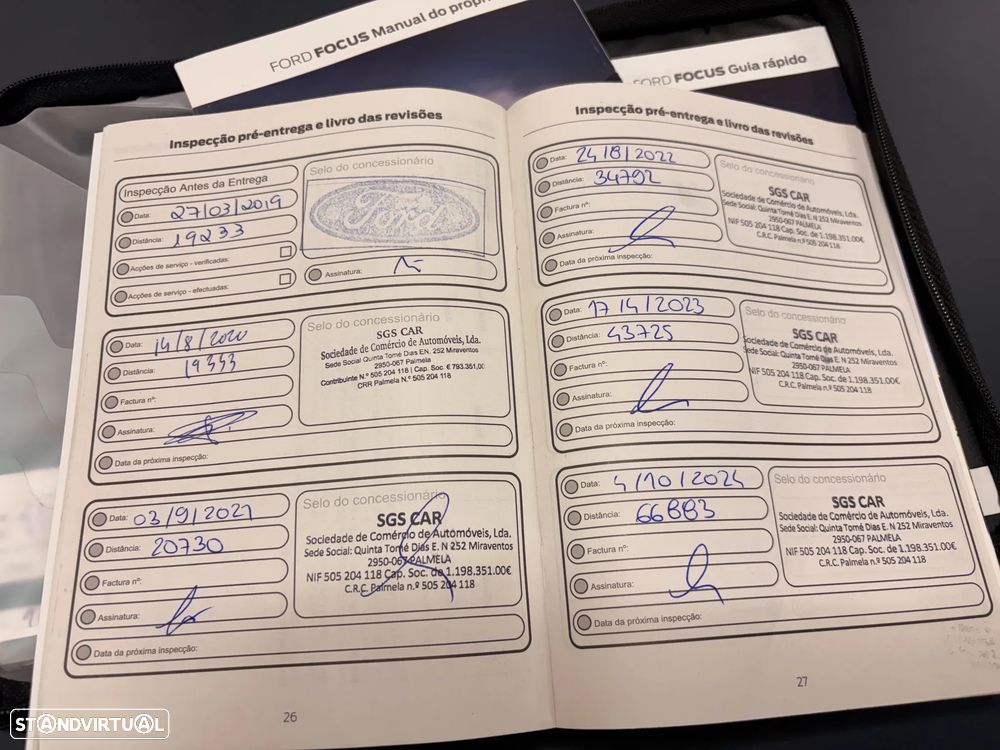 FORD FOCUS Manual do propri
FORD FOCUS Guia rápido
Inspecção pré-entrega e livro das revisões
Inspecção Antes da Entrega
Data: 27/03/2019
Distância: 19233
Acções de serviço - verificadas:
Acções de serviço - efectuadas:
Selo do concessionário
Ford
Assinatura:
Data: 14/8/2020
Distância: 19333
Factura nº:
Assinatura:
Data da próxima inspecção:
Selo do concessionário
SGS CAR
Sociedade de Comércio de Automóveis, Lda.
Sede Social Quinta Tomé Dias EN. 252 Miraventos
2950-067 Palmela
Contribuinte N.º 505 204 118 | Cap. Soc. € 793.351,00
CRR Palmela N.º 505 204 118
Data: 03/9/2021
Distância: 20730
Factura nº:
Assinatura:
Data da próxima inspecção:
Selo do concessionário
SGS CAR
Sociedade de Comércio de Automóveis, Lda.
Sede Social: Quinta Tomé Dias E. N 252 Miraventos
2950-067 PALMELA
NIF 505 204 118 Cap. Soc. de 1.198.351.00€
C.R.C. Palmela n.º 505 204 118
26
Inspecção pré-entrega e livro das revisões
Data: 24/8/2022
Distância: 34792
Factura nº:
Assinatura:
Data da próxima inspecção:
Selo do concessionário
SGS CAR
Sociedade de Comércio de Automóveis, Lda.
Sede Social: Quinta Tomé Dias E. N 252 Miraventos
2950-067 PALMELA
NIF 505 204 118 Cap. Soc. de 1.198.351.00€
C.R.C. Palmela n.º 505 204 118
Data: 17/4/2023
Distância: 43725
Factura nº:
Assinatura:
Data da próxima inspecção:
Selo do concessionário
SGS CAR
Sociedade de Comércio de Automóveis, Lda.
Sede Social: Quinta Tomé Dias E. N 252 Miraventos
2950-067 PALMELA
NIF 505 204 118 Cap. Soc. de 1.198.351.00€
C.R.C. Palmela n.º 505 204 118
Data: 4/10/2024
Distância: 66883
Factura nº:
Assinatura:
Data da próxima inspecção:
Selo do concessionário
SGS CAR
Sociedade de Comércio de Automóveis, Lda.
Sede Social: Quinta Tomé Dias E. N 252 Miraventos
2950-067 PALMELA
NIF 505 204 118 Cap. Soc. de 1.198.351.00€
C.R.C. Palmela n.º 505 204 118
27
STANDVIRTUAL